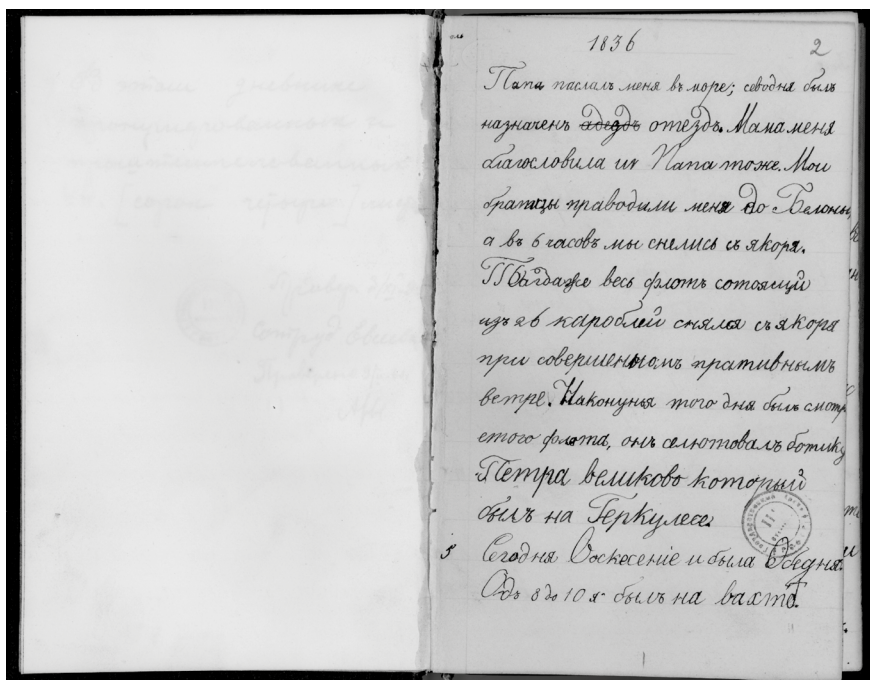 1836
2
Папа паслалъ меня въ море; севодня былъ
назначенъ отездъ. Мама меня
благословила и Папа тоже. Мои
братцы праводили меня до Белоны,
а въ 6 часовъ мы снелись съ якоря.
весь флотъ сотоящий
изъ 26 кароблей снялся съ якоря
при совершеномъ пративнымъ
ветре. Наконунья того дня былъ смотръ
етого флота, онъ селютовалъ ботику
Петра великово который
былъ на Геркулесе.
5 Сегодня Воскесение и была Обедня.
Одъ 8 до 10 я былъ на вахтѣ.